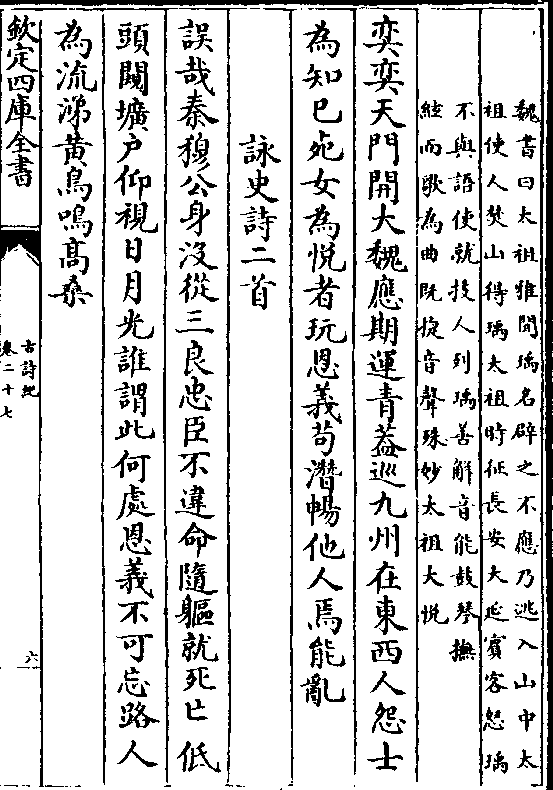 魏書曰太祖雅聞瑀名辟之不應乃逃入山中太
祖使人焚山得瑀太祖時征長安大延賓客怒瑀
不與語使就技人列瑀善解音能鼓琴撫
絃而歌為曲既㨗音聲殊妙太祖大悅
奕奕天門開大魏應期運青葢巡九州在東西人怨士
為知已死女為悅者玩恩義茍潛暢他人焉能亂
詠史詩二首
誤哉秦穆公身没從三良忠臣不違命隨軀就死亡低
頭闚壙户仰視日月光誰謂此何處恩義不可忘路人
為流涕黄鳥鳴髙桑
欽定四庫全書
古詩紀
卷二十七
六